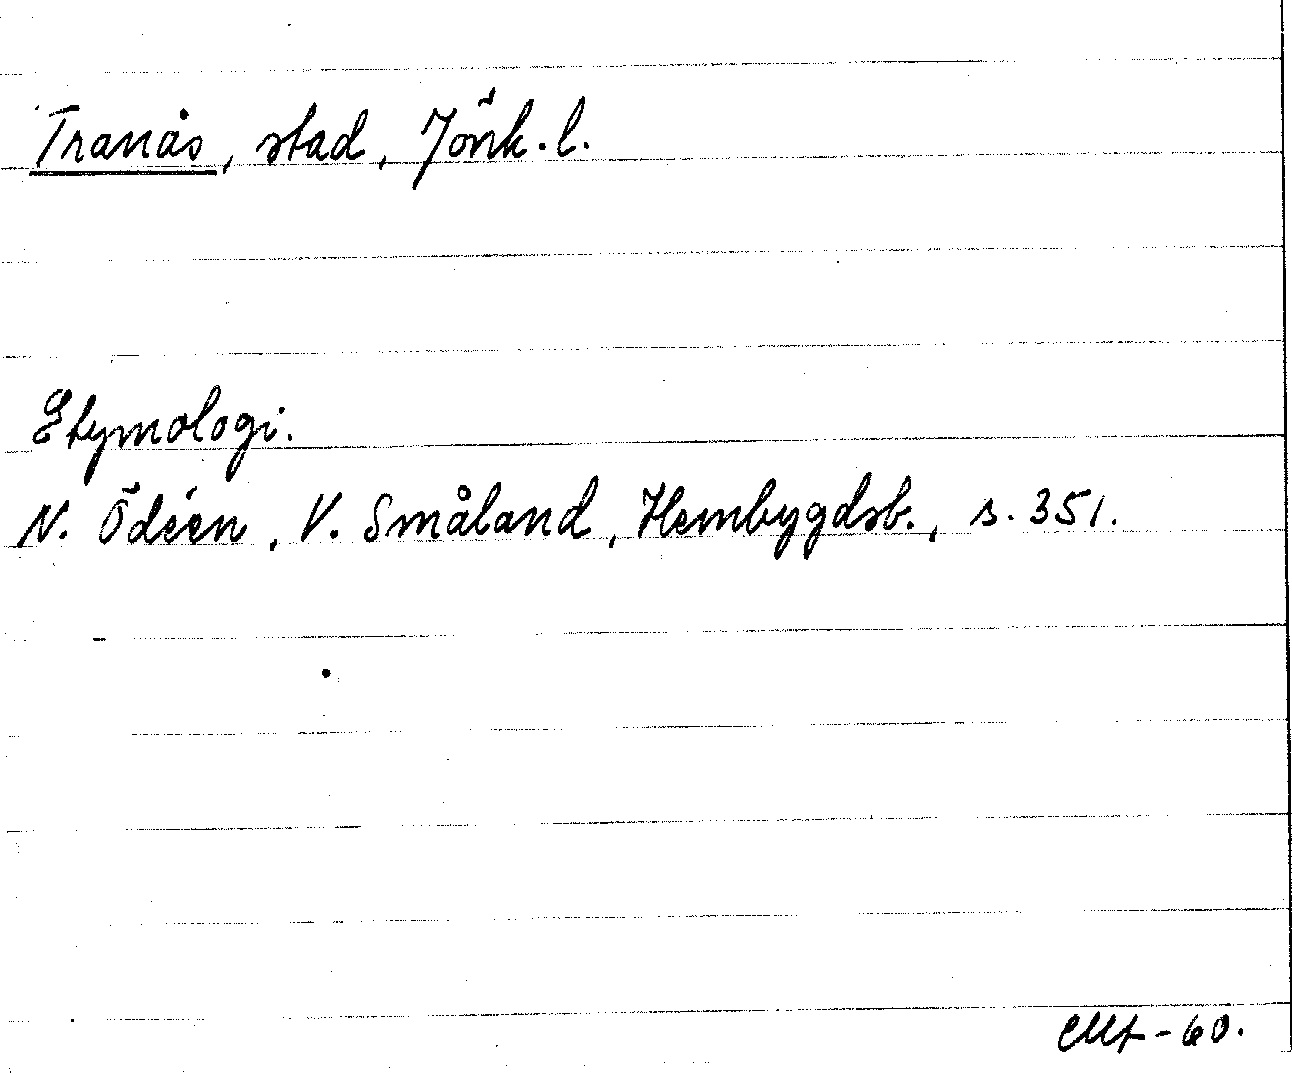 Tranås, stad, Jönk. l.
Etymologi.
N. Ödéen, V. Småland, Hembygdsb., s. 351.
-60.